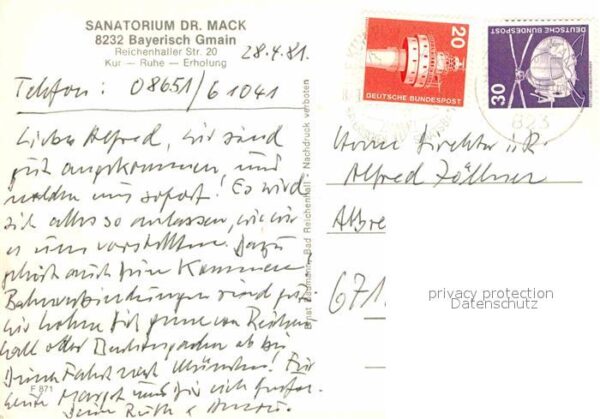 SANATORIUM DR. MACK
8232 Bayerisch Gmain
Reichenhaller Str. 20
Kur — Ruhe — Erholung
28.4.81.
Telefon: 08651/61041
Lieber Alfred, wir sind
gut angekommen, und
melden uns sofort! Es wird
sich alles so anlassen, wie wir
es uns vorstellten. Dazu
gehört auch Dein Kommen.
Bahnverbindungen sind gut
wir holen Dich gerne von Reichen-
hall oder Berchtesgaden ab bei
Deiner Fahrt nach München! Für
heute Margot und Dir
Deine Ruth +
F 871
Ernst Baumann, Bad Reichenhall - Nachdruck verboten
20
DEUTSCHE BUNDESPOST
30
DEUTSCHE BUNDESPOST
823
Herrn Direktor i.R.
Alfred Zöllner
Albre
671
privacy protection
Datenschutz